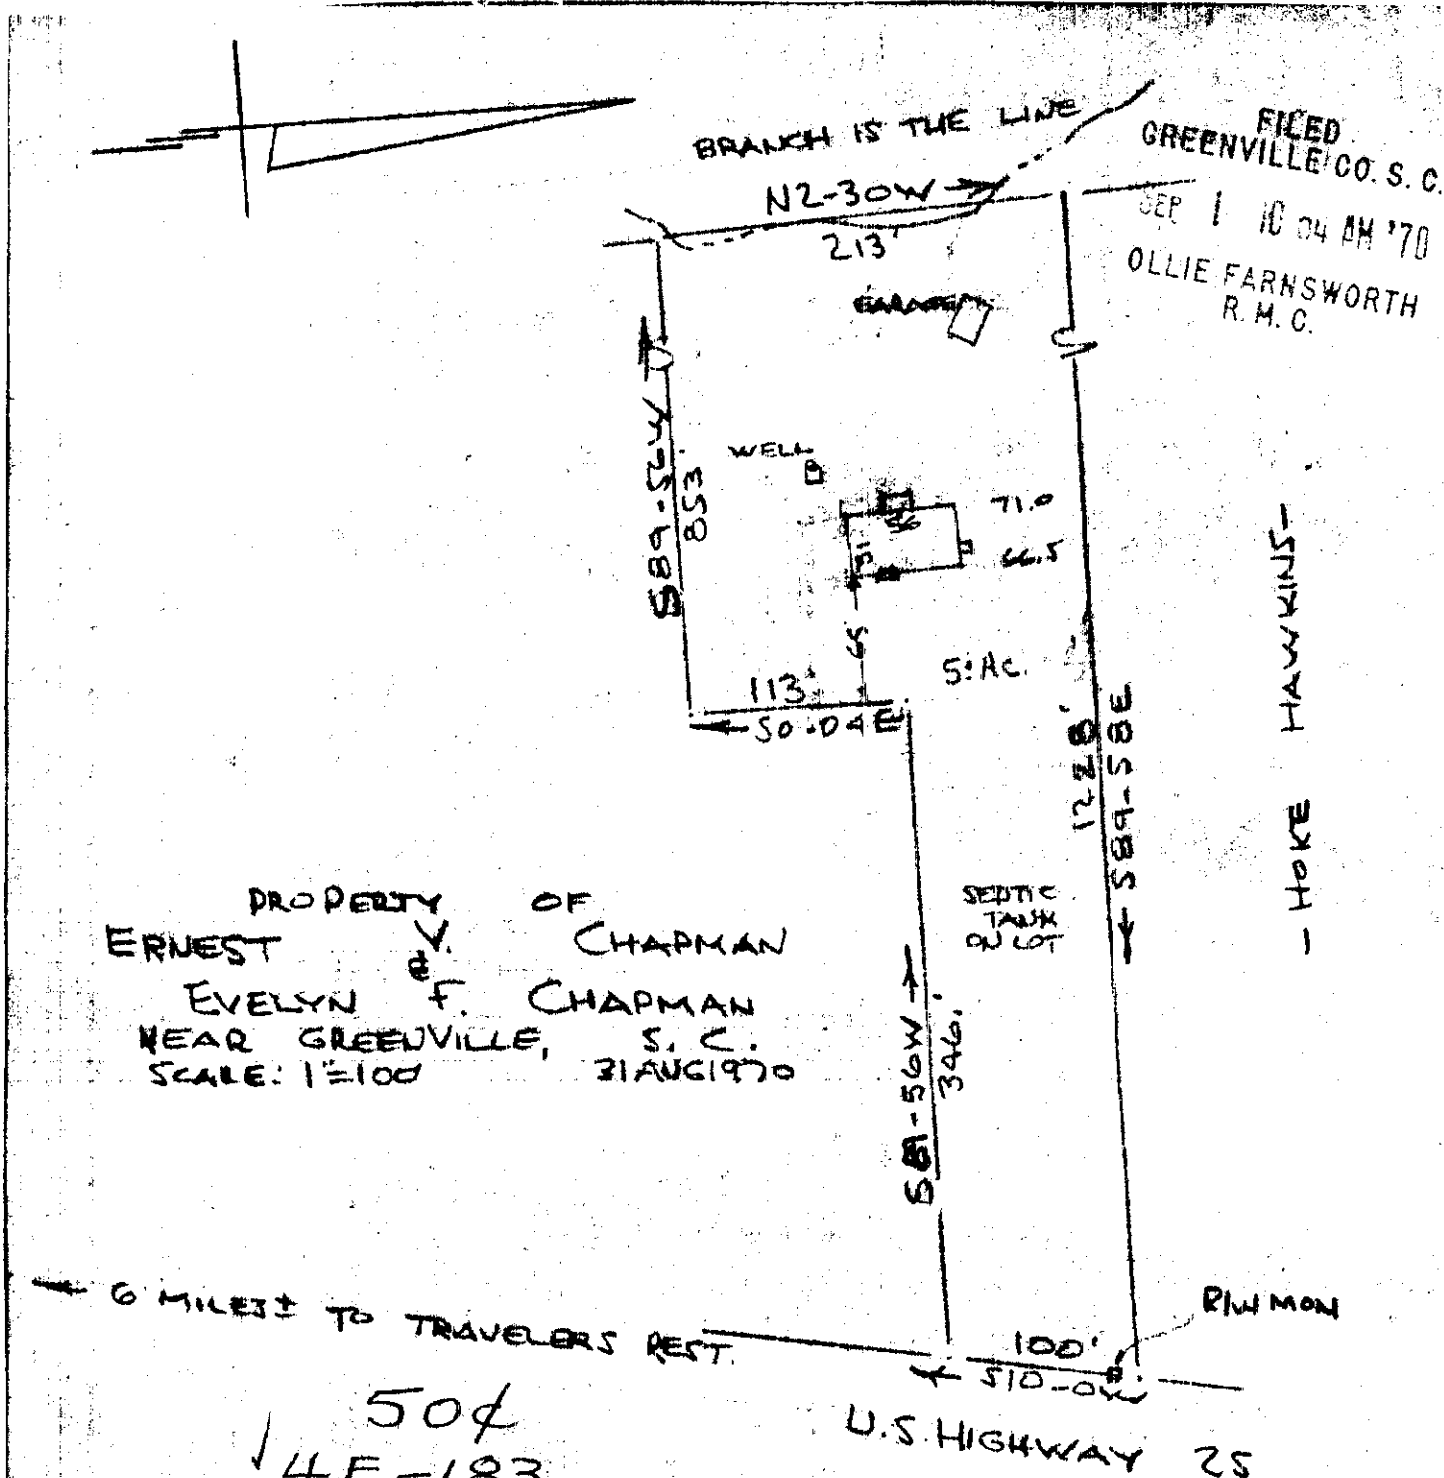 BRANCH IS THE LINE
FILED
GREENVILLE CO. S. C.
SEP 1 10 04 AM '70
OLLIE FARNSWORTH
R. M. C.
N2-30W
213'
GARAGE
S89-56W
853.
WELL
71.0
46
31
66.5
65
5.Ac.
113'
S0-04E
1228'
S89-58E
- HOKE HAWKINS -
SEPTIC
TANK
ON LOT
PROPERTY OF
ERNEST V. CHAPMAN
&
EVELYN F. CHAPMAN
NEAR GREENVILLE, S. C.
SCALE: 1"=100' 31AUG1970
S89-56W
346.'
6 MILES± TO TRAVELERS REST.
R/W MON
100'
S10-0W
U.S. HIGHWAY 25
50¢
4F-183